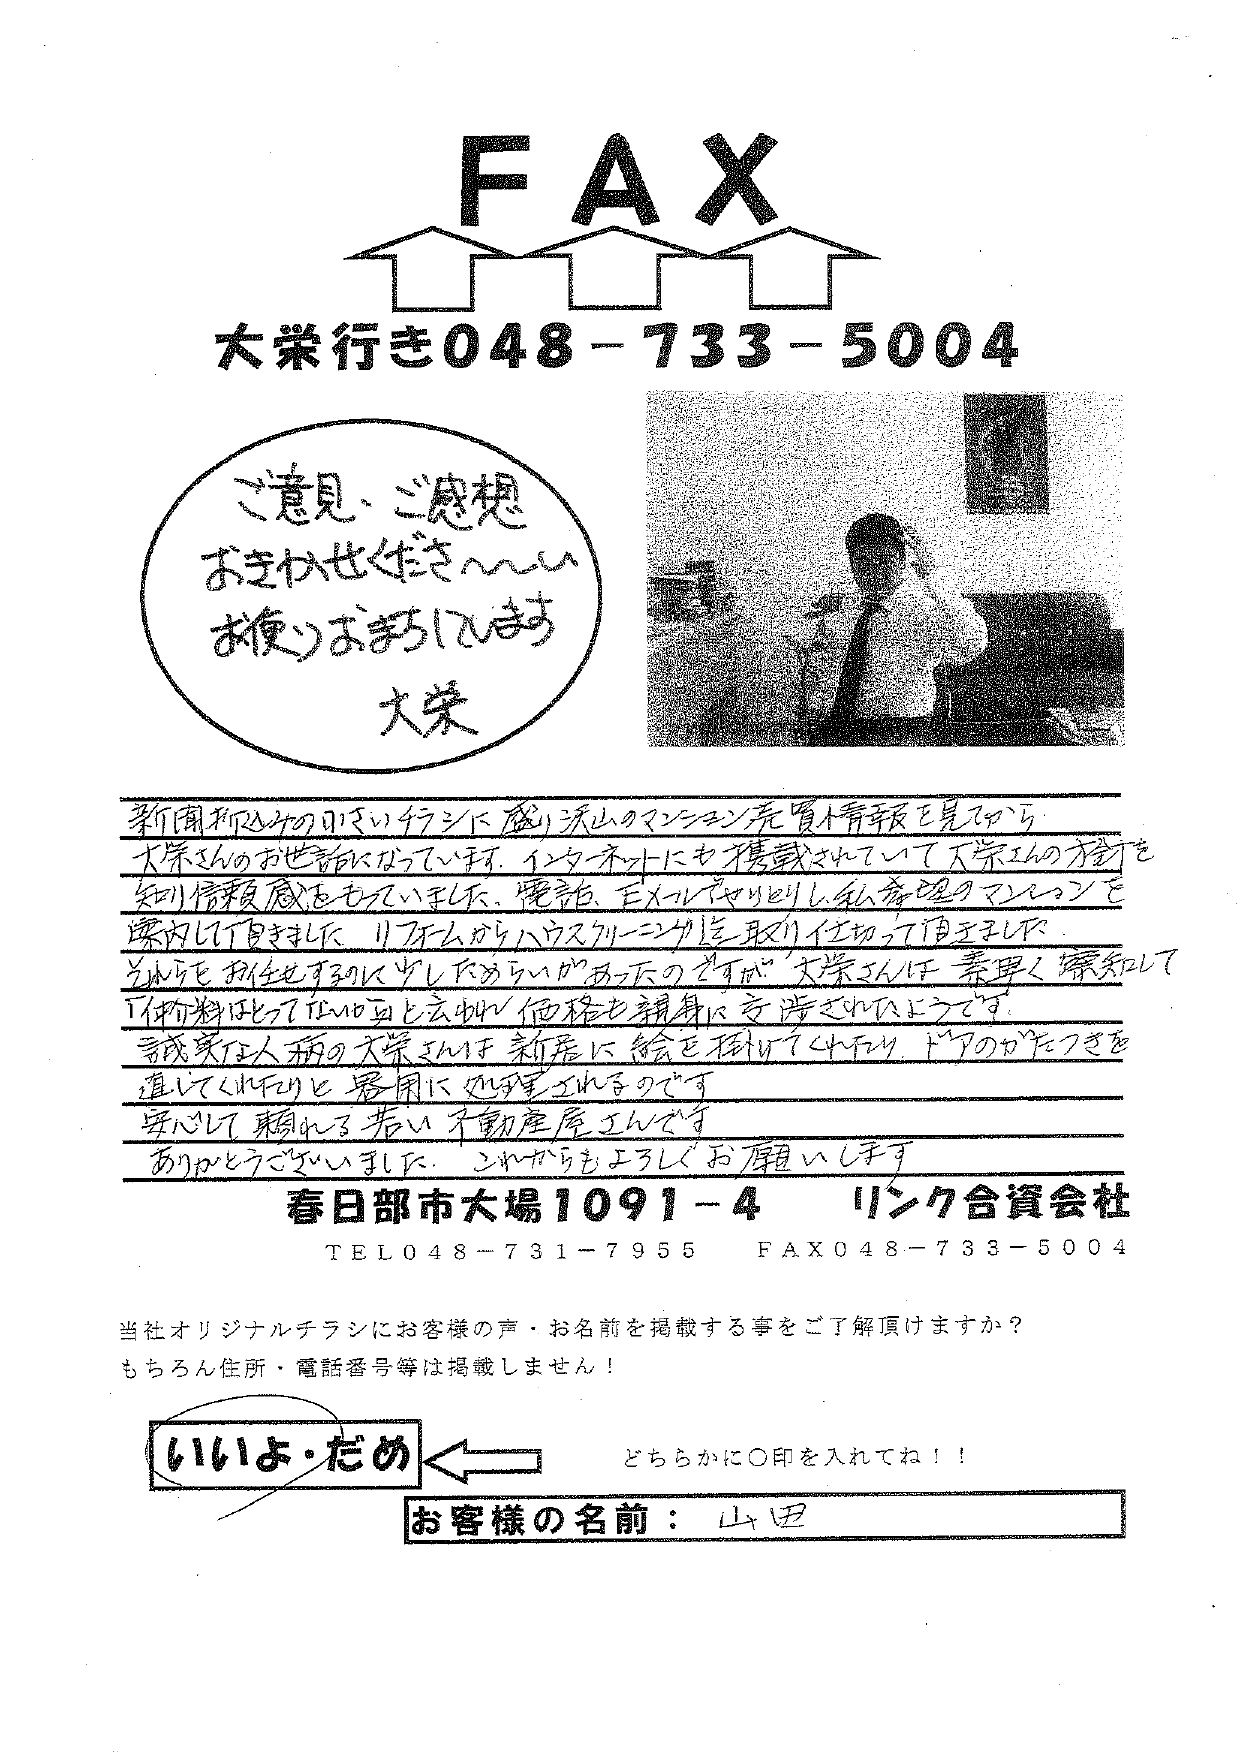 FAX
大栄行き048－733－5004
ご意見、ご感想
おきかせくださ～～い
お便りおまちしています
大栄
新聞折込みの小さいチラシに盛り沢山のマンション売買情報を見てから
大栄さんのお世話になっています。インターネットにも掲載されていて大栄さんの方針を
知り信頼感をもっていました。電話、Eメールでやりとりし、私希望のマンションを
案内して頂きました リフォームからハウスクリーニング迄取り仕切って頂きました.
それらをお任せするのに少しためらいがあったのですが 大栄さんは素早く察知して
「仲介料はとってない」と云われ 価格も親身に交渉されたようです.
誠実な人柄の大栄さんは新居に絵を掛けてくれたり、ドアのがたつきを
直してくれたりと 器用に処理されるのです
安心して頼れる若い不動産屋さんです
ありがとうございました. これからもよろしくお願いします
春日部市大場1091－4 リンク合資会社
TEL048－731－7955 FAX048－733－5004
当社オリジナルチラシにお客様の声・お名前を掲載する事をご了解頂けますか？
もちろん住所・電話番号等は掲載しません！
いいよ・だめ どちらかに○印を入れてね！！
お客様の名前： 山田